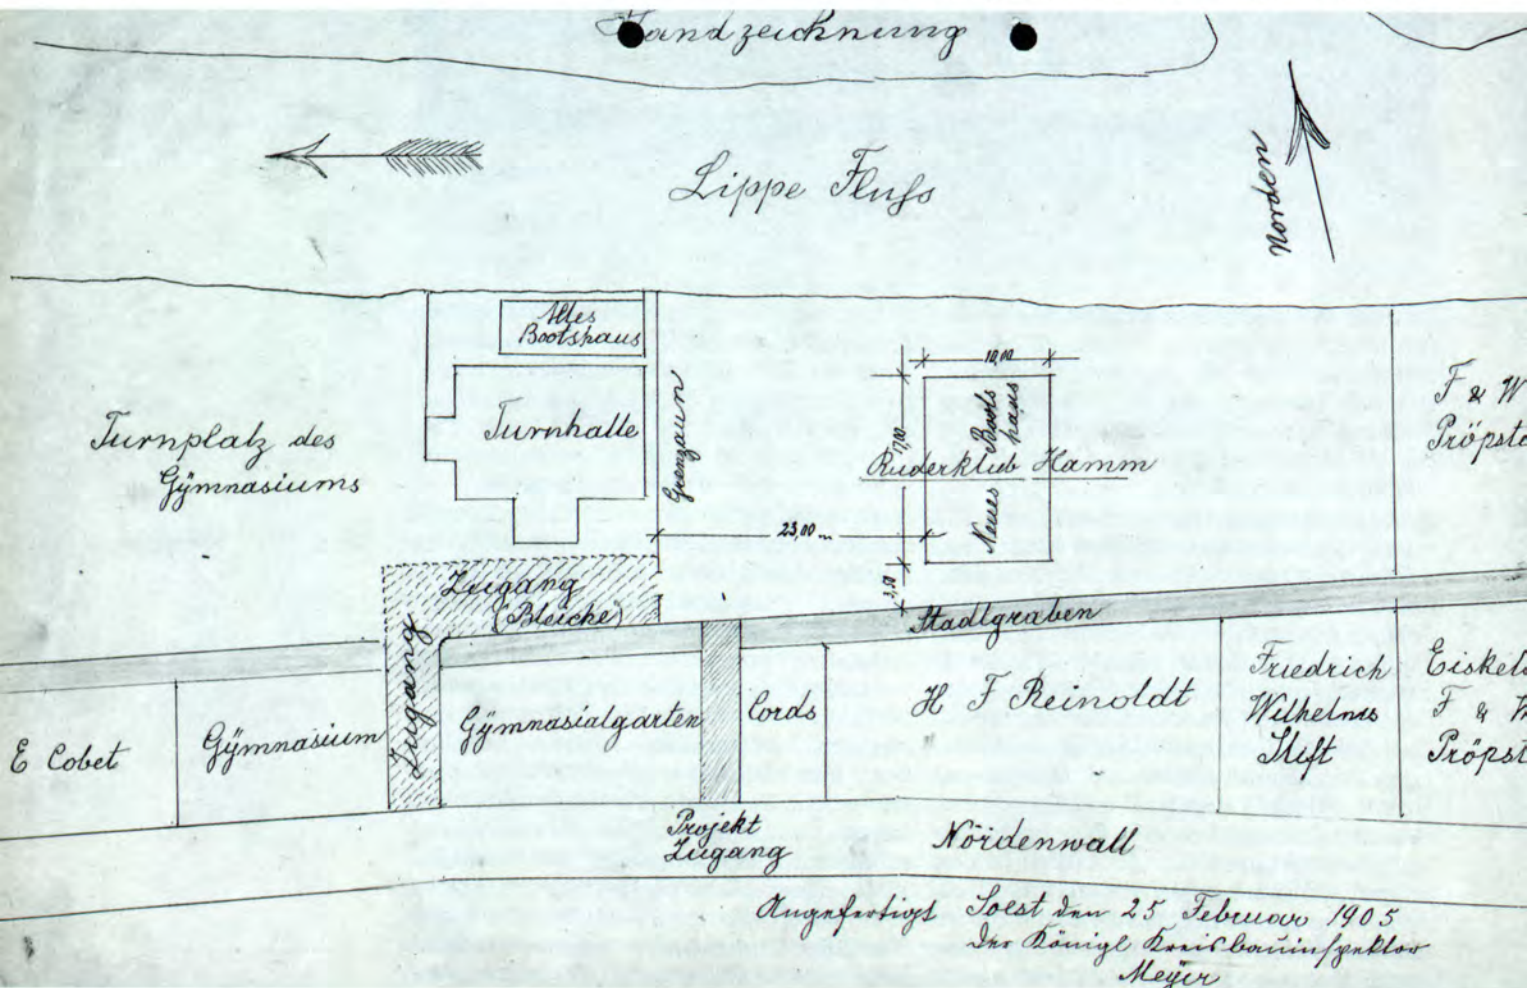 Handzeichnung
Norden
Lippe Fluss
Altes
Bootshaus
Turnplatz des
Gymnasiums
Turnhalle
Grenzaun
10,00
17,00
Neues Boots
haus
Ruderklub Hamm
F & W
Pröpst
23,00 m
3,50
Zugang
(Bleiche)
Stadtgraben
E Cobet
Gymnasium
Zugang
Gymnasialgarten
Cords
H F Reinoldt
Friedrich
Wilhelms
Stift
Eiskel
F & W
Pröpst
Projekt
Zugang
Nördenwall
Angefertigt Soest den 25 Februar 1905
Der Königl Kreisbauinspektor
Meyer